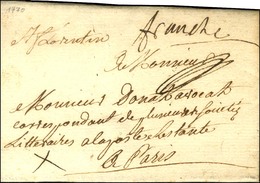 1770
St florentin
franche
A Monsieur
Monsieur Donat avocat
correspondant de plusieurs Société
Litteraires a la poste restante
A Paris